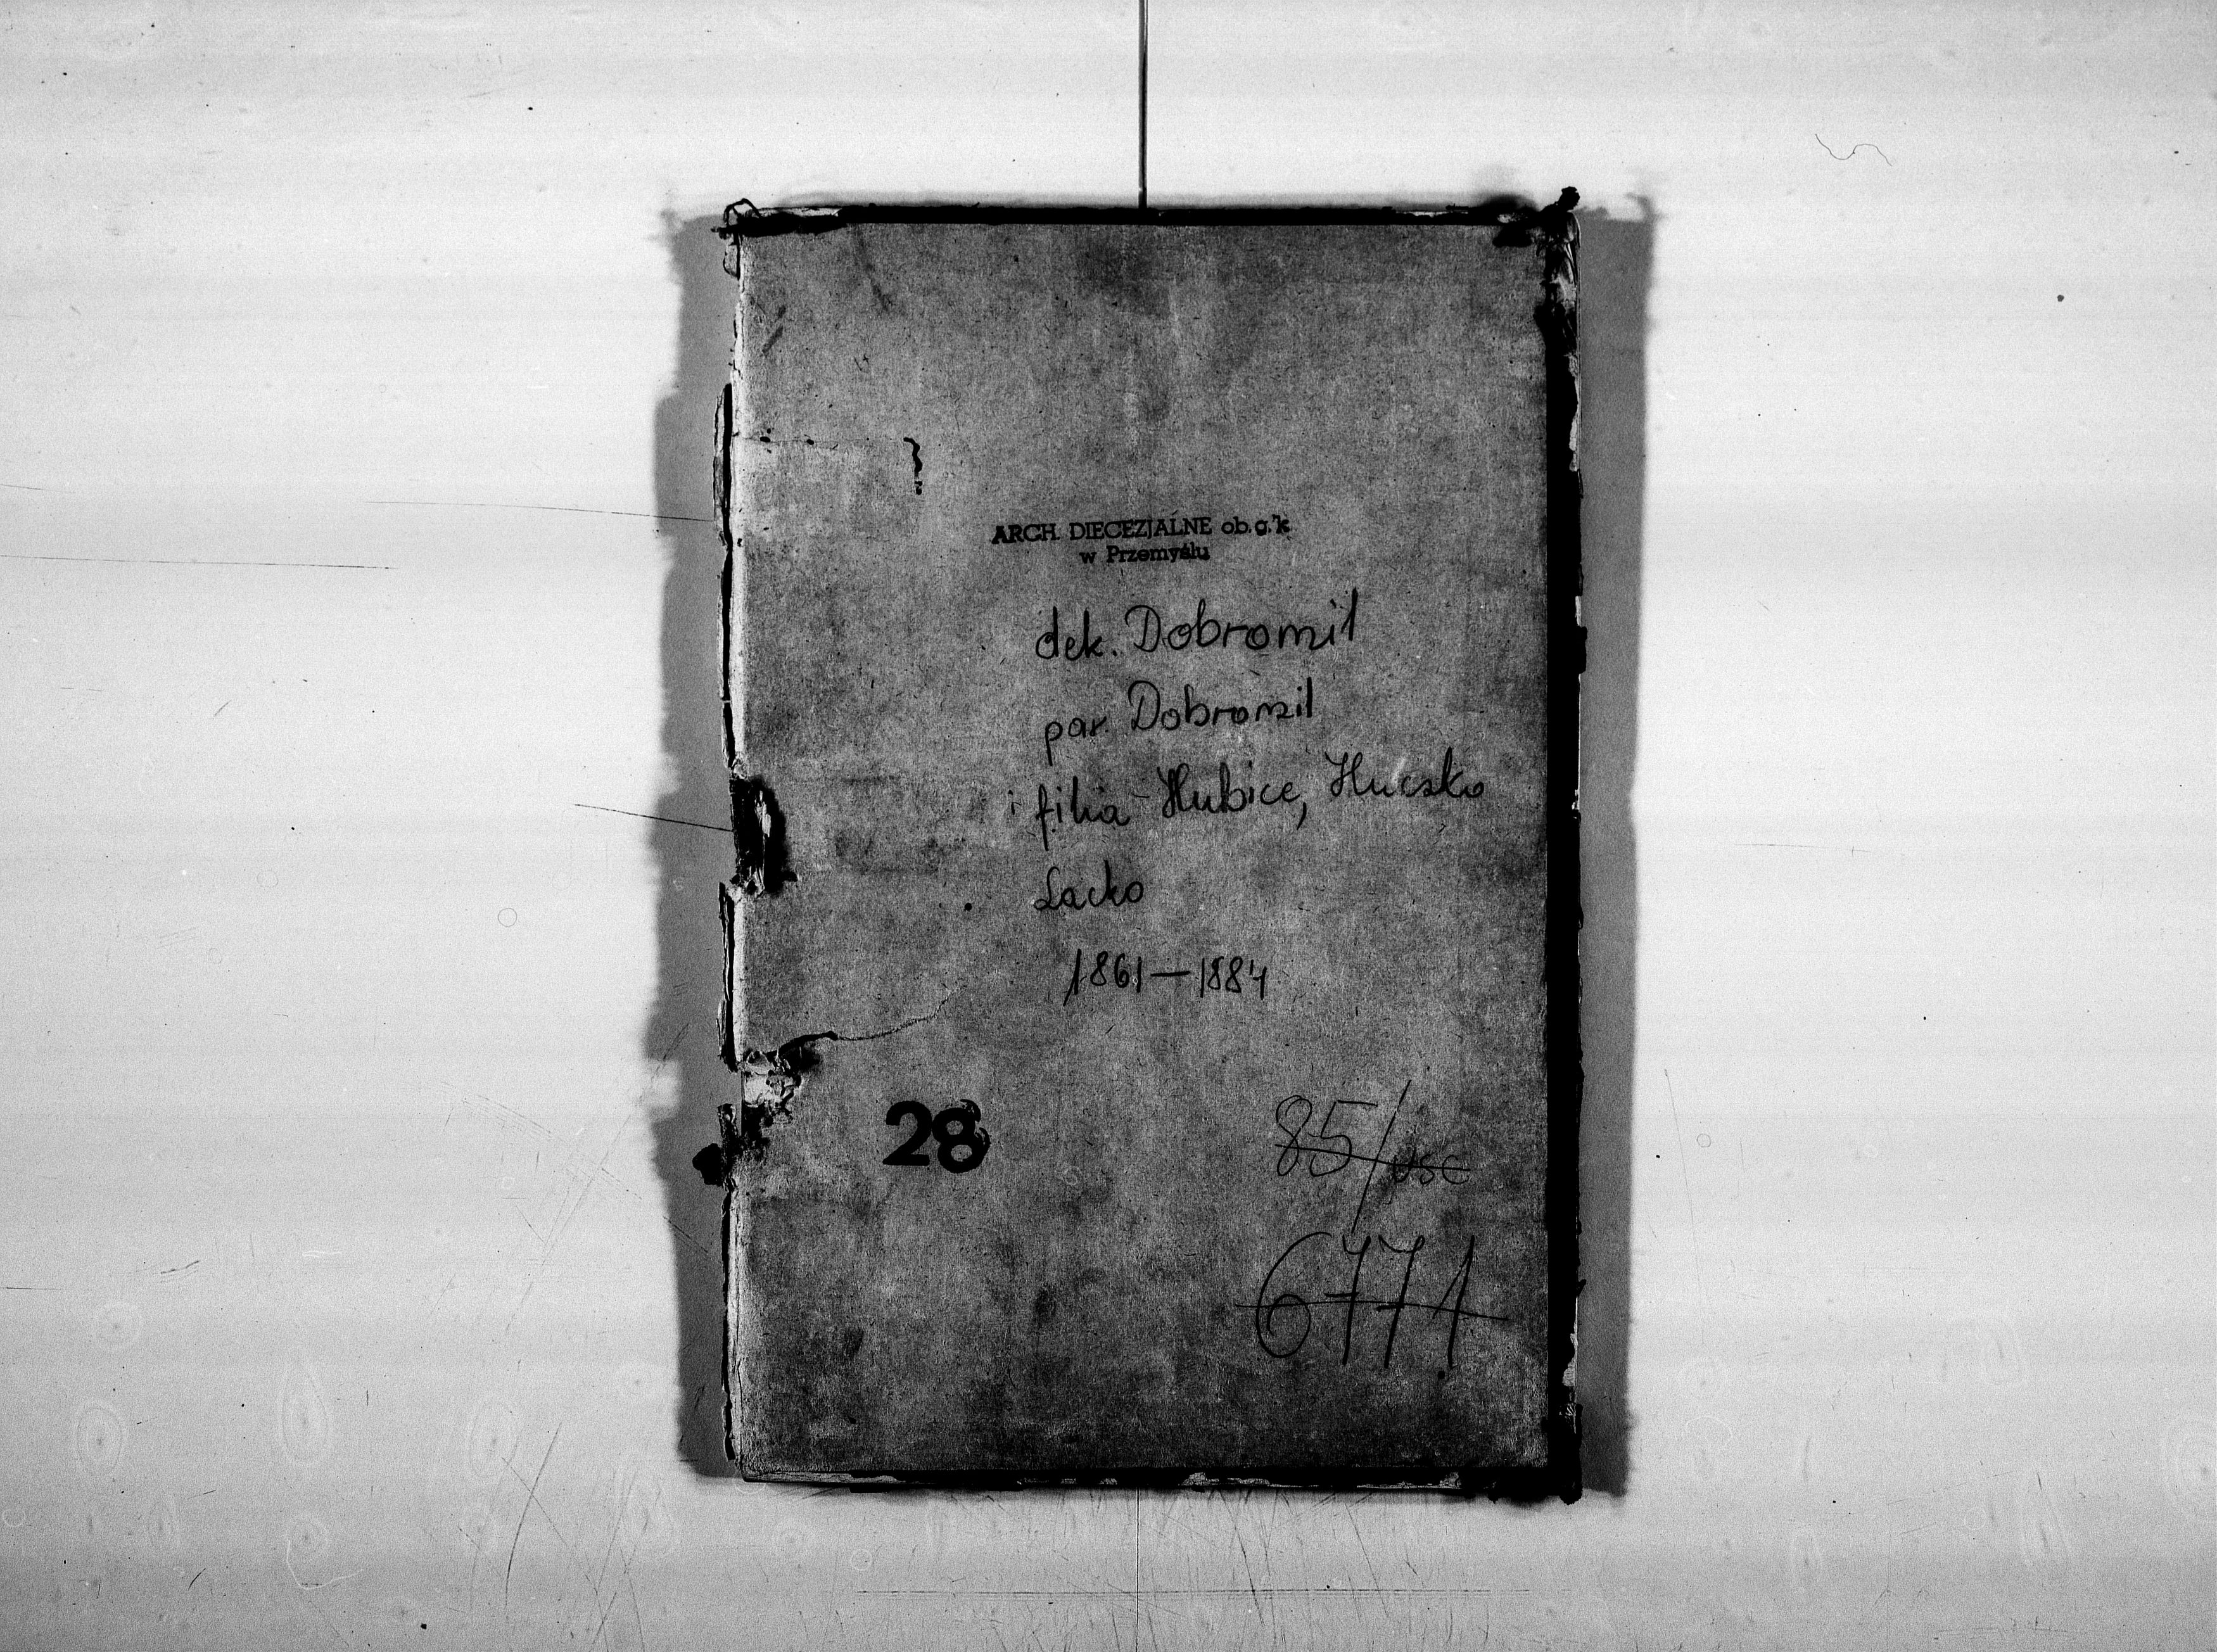 ARCH. DIECEZJALNE ob.g.k
w Przemyślu
dek. Dobromil
par. Dobromil
i filia - Hubice, Huczko
Lacko
1861 — 1884
28
85/usc
6771